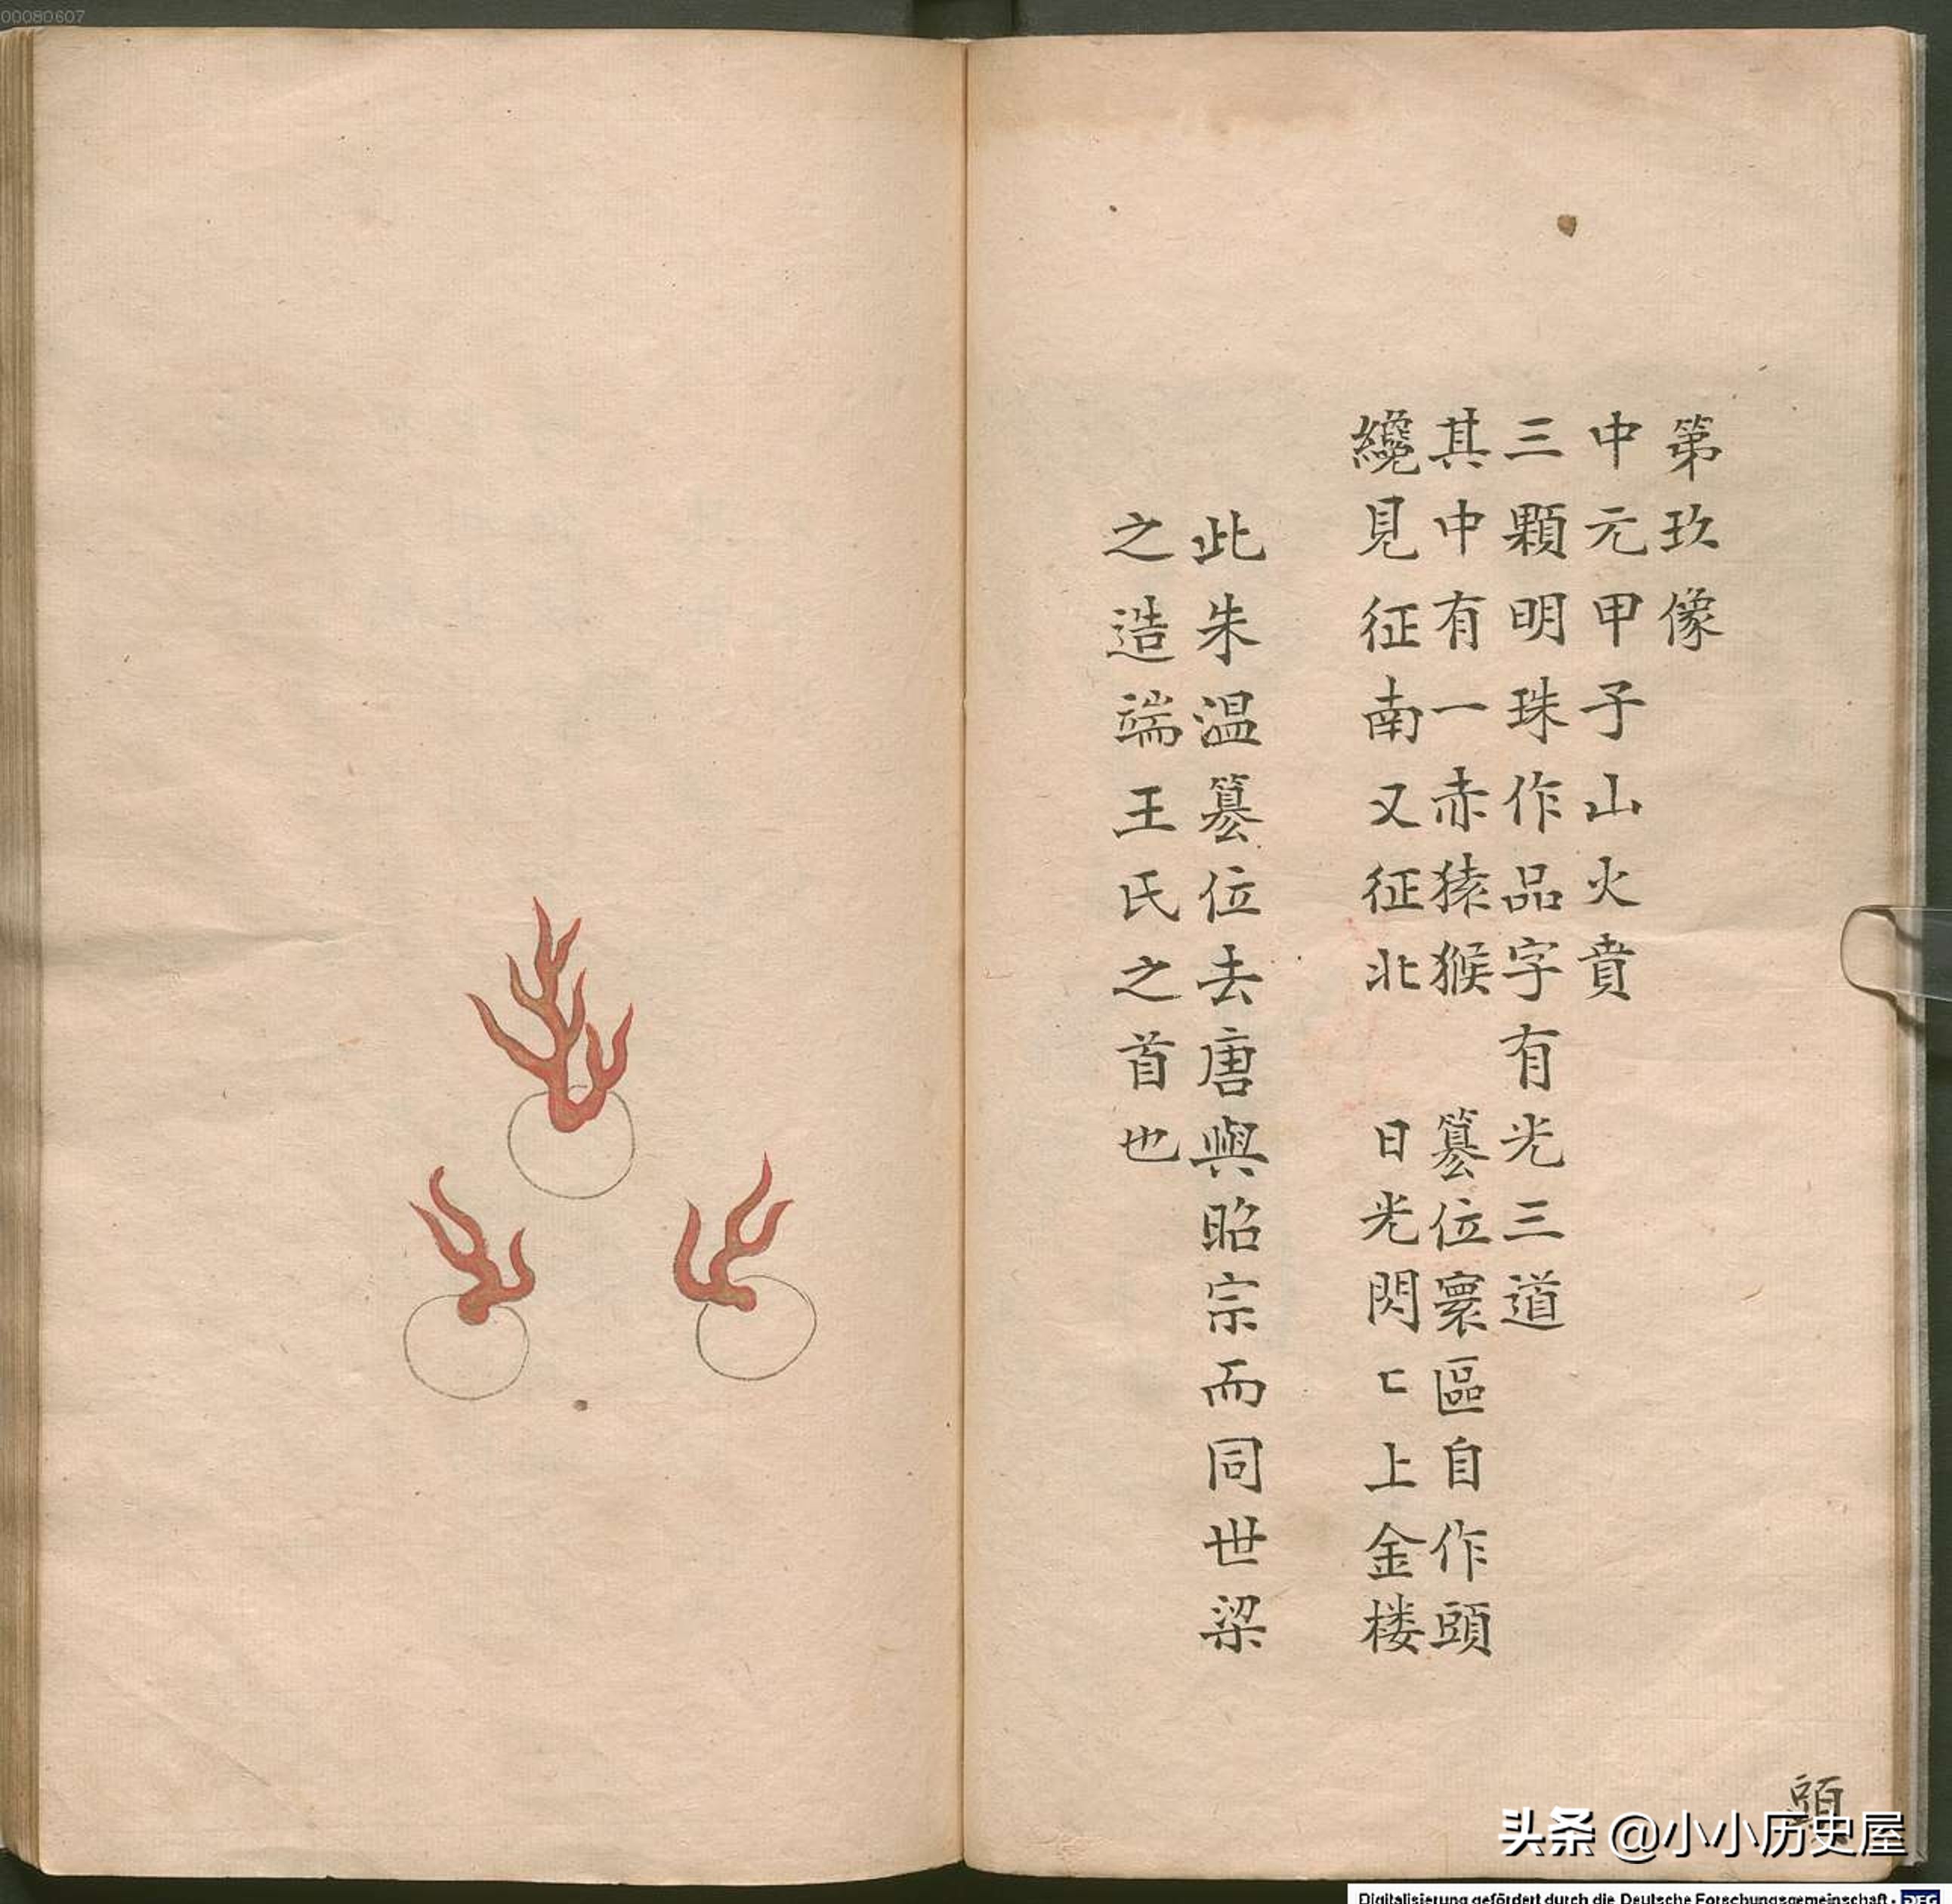 第玖像
中元甲子山火賁
三顆明珠作品字有光三道
其中有一赤猿猴 篡位寰區自作頭
纔見征南又征北 日光閃〻上金楼
此朱温篡位去唐與昭宗而同世梁
之造端王氏之首也
頭
00080607
头条 @小小历史屋
Digitalisierung gefördert durch die Deutsche Forschungsgemeinschaft - DFG